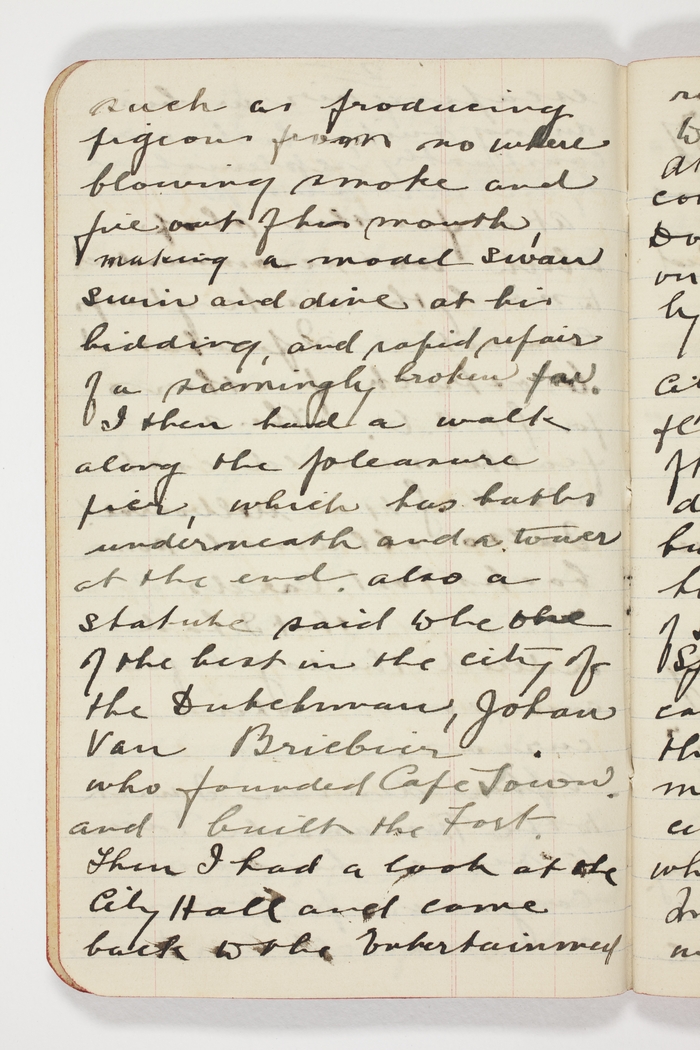 such as producing
pigeons from no where
blowing smoke and
fire out of his mouth,
making a model swan
swim and dive at his
bidding, and rapid repair
of a seemingly broken
I then had a walk
along the pleasure
pier, which has baths
underneath and a tower
at the end. also a
statute said to be the
of the best in the city of
the Dutchman, Johan
Van
who founded Cape Town.
and built the Fort.
Then I had a look at the
City Hall and came
back to the Entertainmed